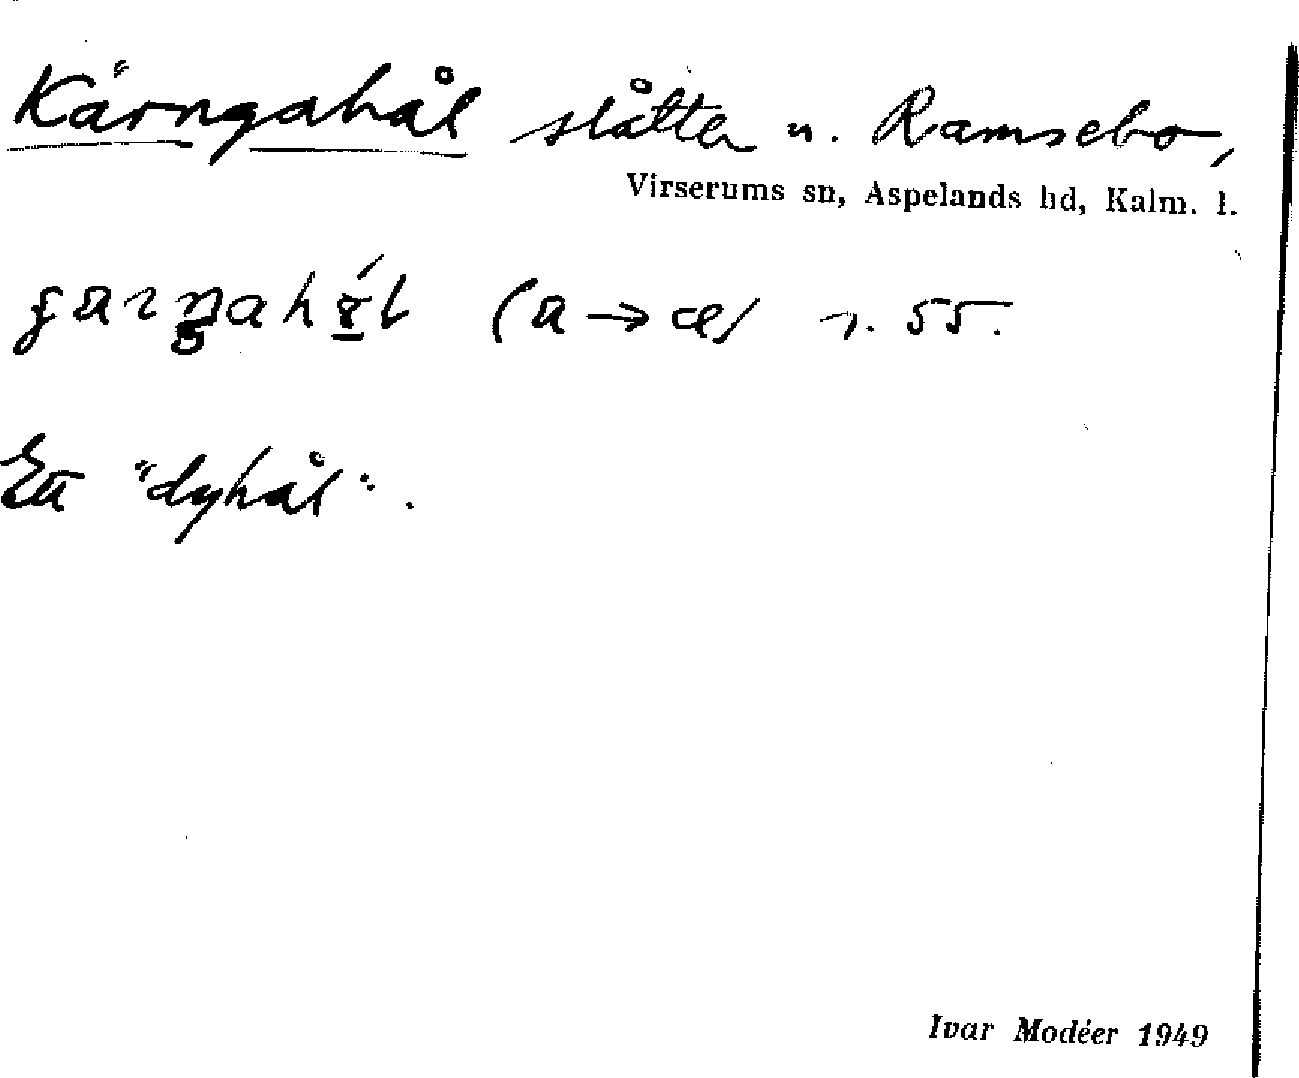 Kärngahål slåtter u. Ramsebo,
Virserums sn, Aspelands hd, Kalm. l.
(a → æ) 55.
Ett "dyhål".
Ivar Modéer 1949